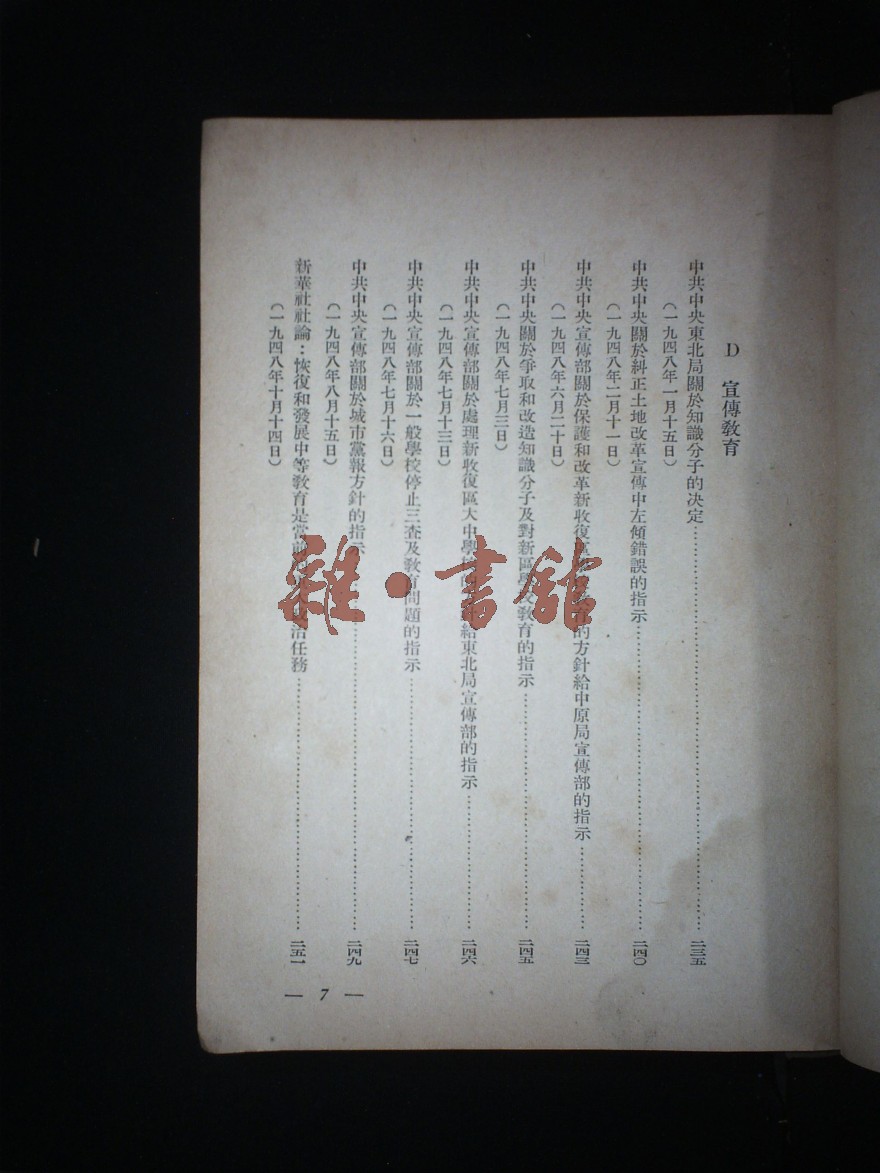 D 宣傳教育
中共中央東北局關於知識分子的决定……二三五
（一九四八年一月十五日）
中共中央關於糾正土地改革宣傳中左傾錯誤的指示……二四〇
（一九四八年二月十一日）
中共中央宣傳部關於保護和改革新收復 教育的方針給中原局宣傳部的指示……二四三
（一九四八年六月二十日）
中共中央關於爭取和改造知識分子及對新區學校教育的指示……二四五
（一九四八年七月三日）
中共中央宣傳部關於處理新收復區大中學校 給東北局宣傳部的指示……二四六
（一九四八年七月十三日）
中共中央宣傳部關於一般學校停止三查及教育問題的指示……二四七
（一九四八年七月十六日）
中共中央宣傳部關於城市黨報方針的指示……二四九
（一九四八年八月十五日）
新華社社論：恢復和發展中等教育是當前 政治任務……二五一
（一九四八年十月十四日）
— 7 —
雜·書館